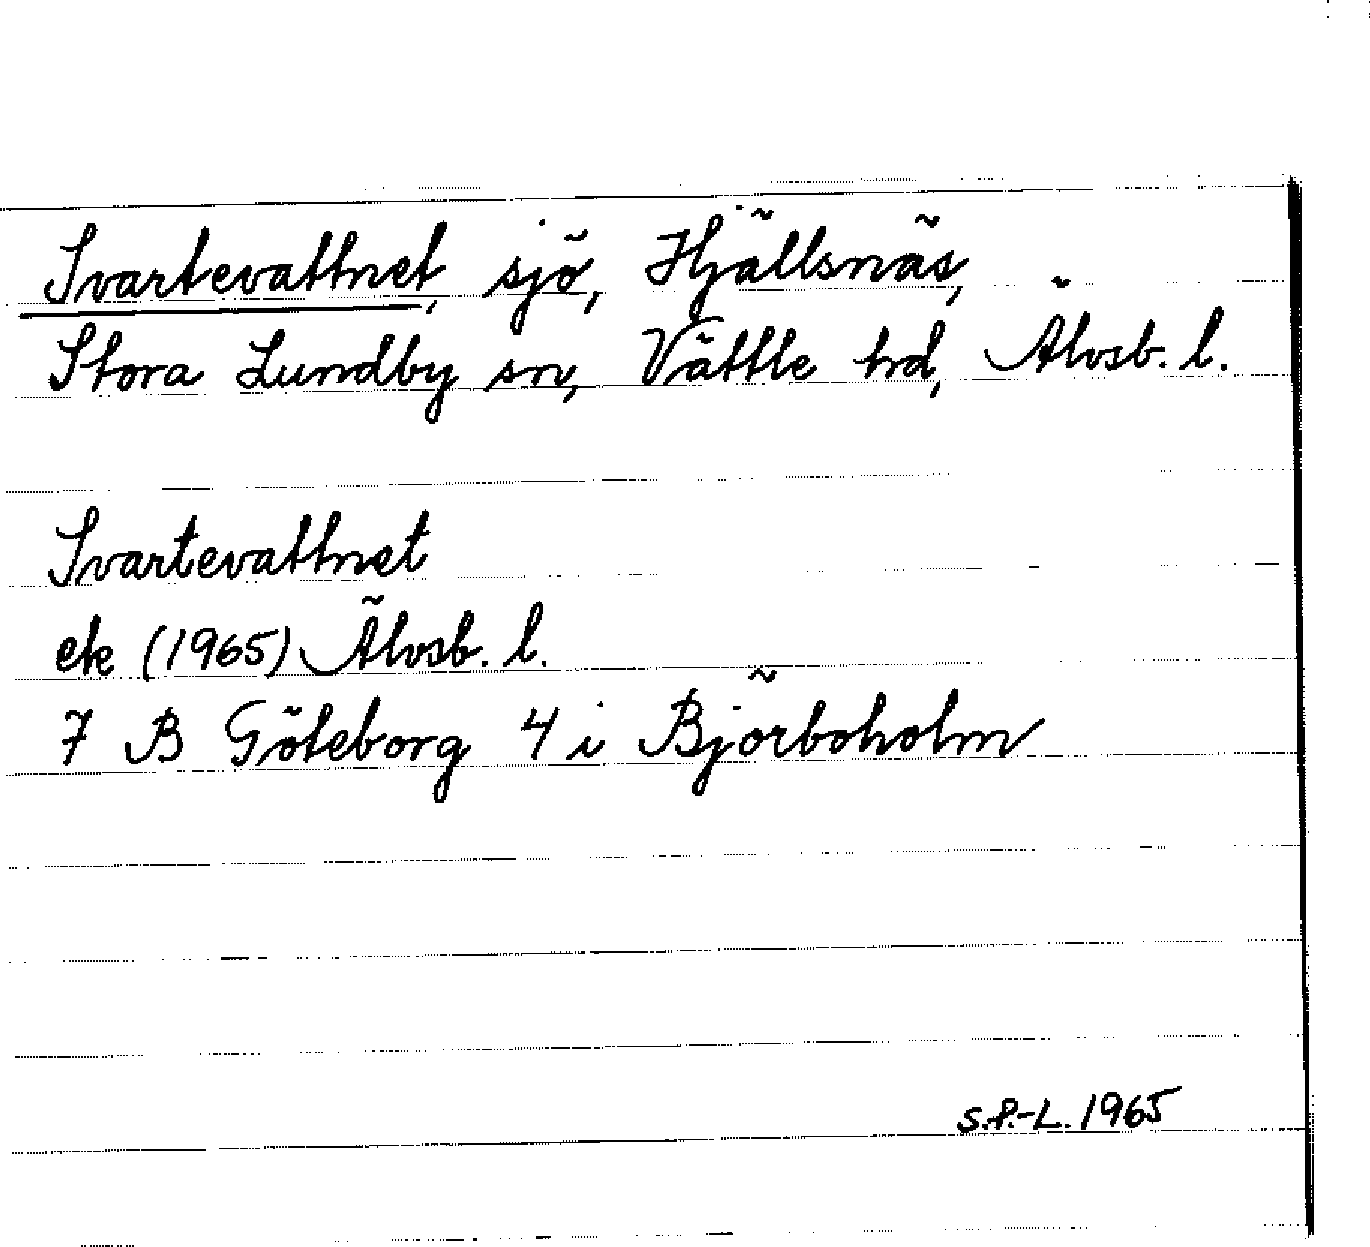 Svartevattnet, sjö, Hjällsnäs,
Stora Lundby sn, Vättle hd, Älvsb. l.
Svartevattnet
ek (1965) Älvsb. l.
7 B Göteborg 4 i Björboholm
S.P.-L. 1965